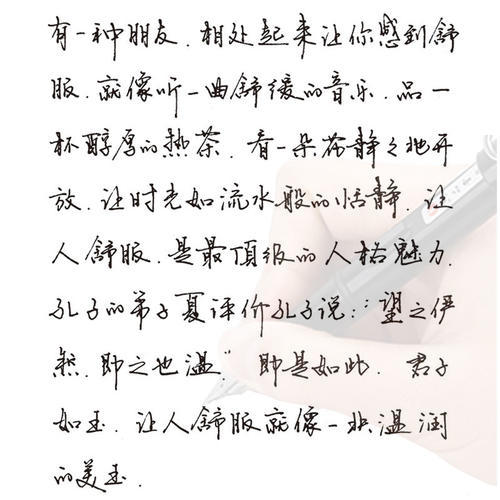 有一种朋友.相处起来让你感到舒
服.就像听一曲舒缓的音乐.品一
杯醇厚的热茶.看一朵花静之地开
放.让时光如流水般的恬静.让
人舒服.是最顶级的人格魅力.
孔子的弟子夏评价孔子说:"望之伊
然.即之也温."即是如此.君子
如玉.让人舒服就像一块温润
的美玉.